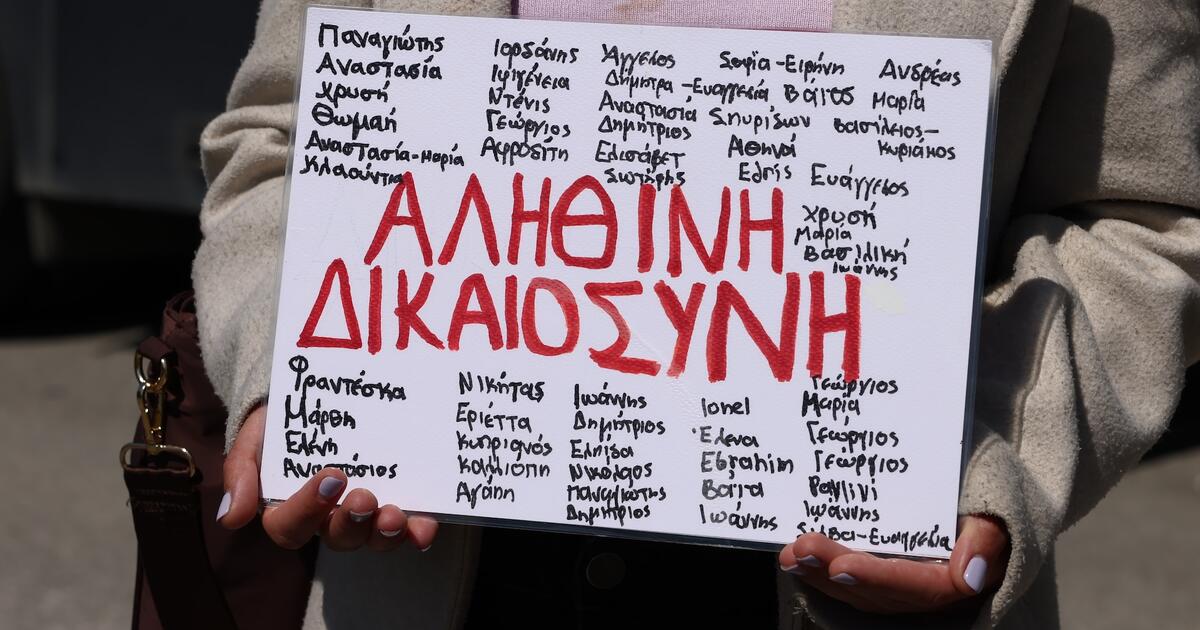 Παναγιώτης
Αναστασία
Χρυσή
Θωμαή
Αναστασία-Μαρία
Κλαούντια
Ιορδάνης
Ιφιγένεια
Ντένις
Γεώργιος
Αφροδίτη
Άγγελος
Δήμητρα-Ευαγγελία
Αναστασία
Δημήτριος
Ελισάβετ
Σωτήρης
Σοφία-Ειρήνη
Βάιος
Σπυρίδων
Αθηνά
Ελπίς
Ανδρέας
Μαρία
Βασίλειος-
Κυριάκος
Ευάγγελος
Χρυσή
Μαρία
Βασιλική
Ιωάννης
ΑΛΗΘΙΝΗ
ΔΙΚΑΙΟΣΥΝΗ
Φραντέσκα
Μάρθη
Ελένη
Αναστάσιος
Νικήτας
Εριέττα
Κυπριανός
Καλλιόπη
Αγάπη
Ιωάννης
Δημήτριος
Ελπίδα
Νικόλαος
Παναγιώτης
Δημήτριος
Ionel
Έλενα
Ebrahim
Βάια
Ιωάννης
Γεώργιος
Μαρία
Γεώργιος
Γεώργιος
Παυλίνα
Ιωάννης